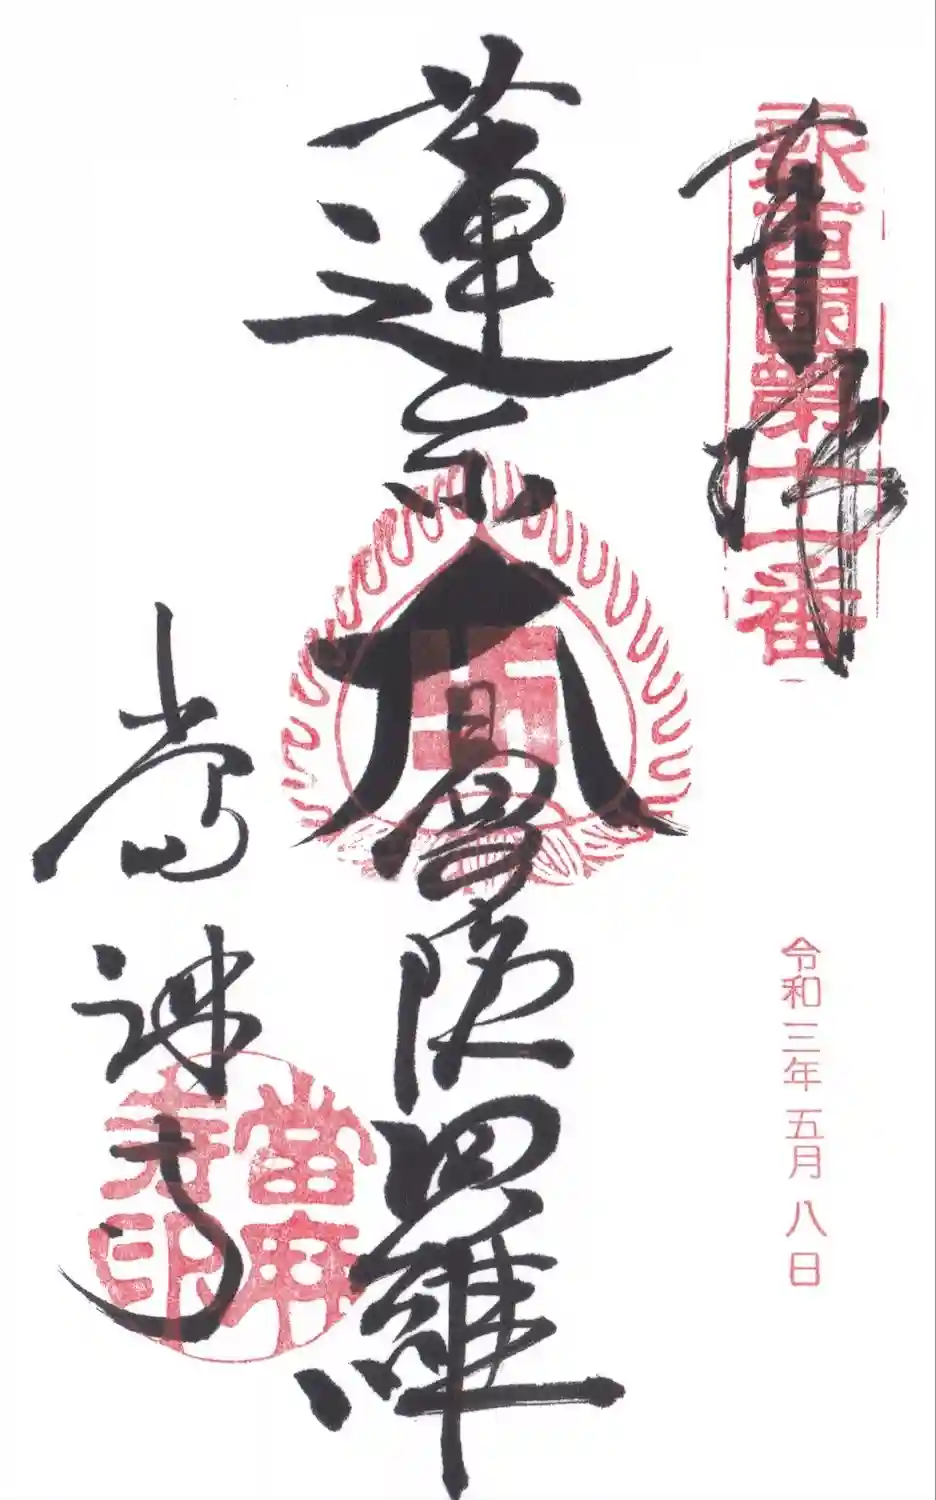 奉拝
新西國第十一番
令和三年五月八日
蓮糸大曼陀羅
卍
當麻寺
當麻寺印